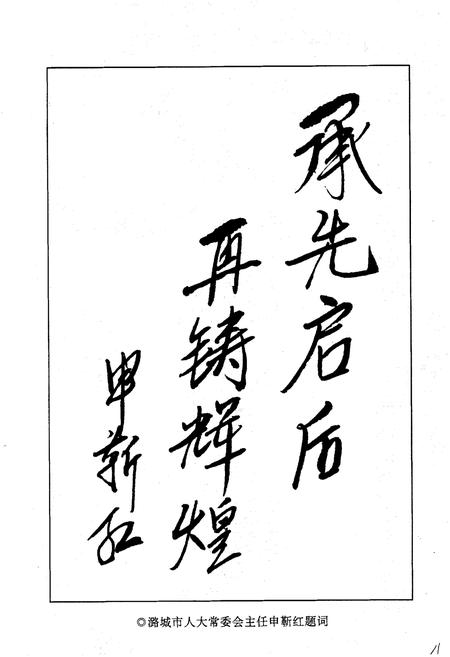 承先启后
再铸辉煌
申靳红
◎潞城市人大常委会主任申靳红题词